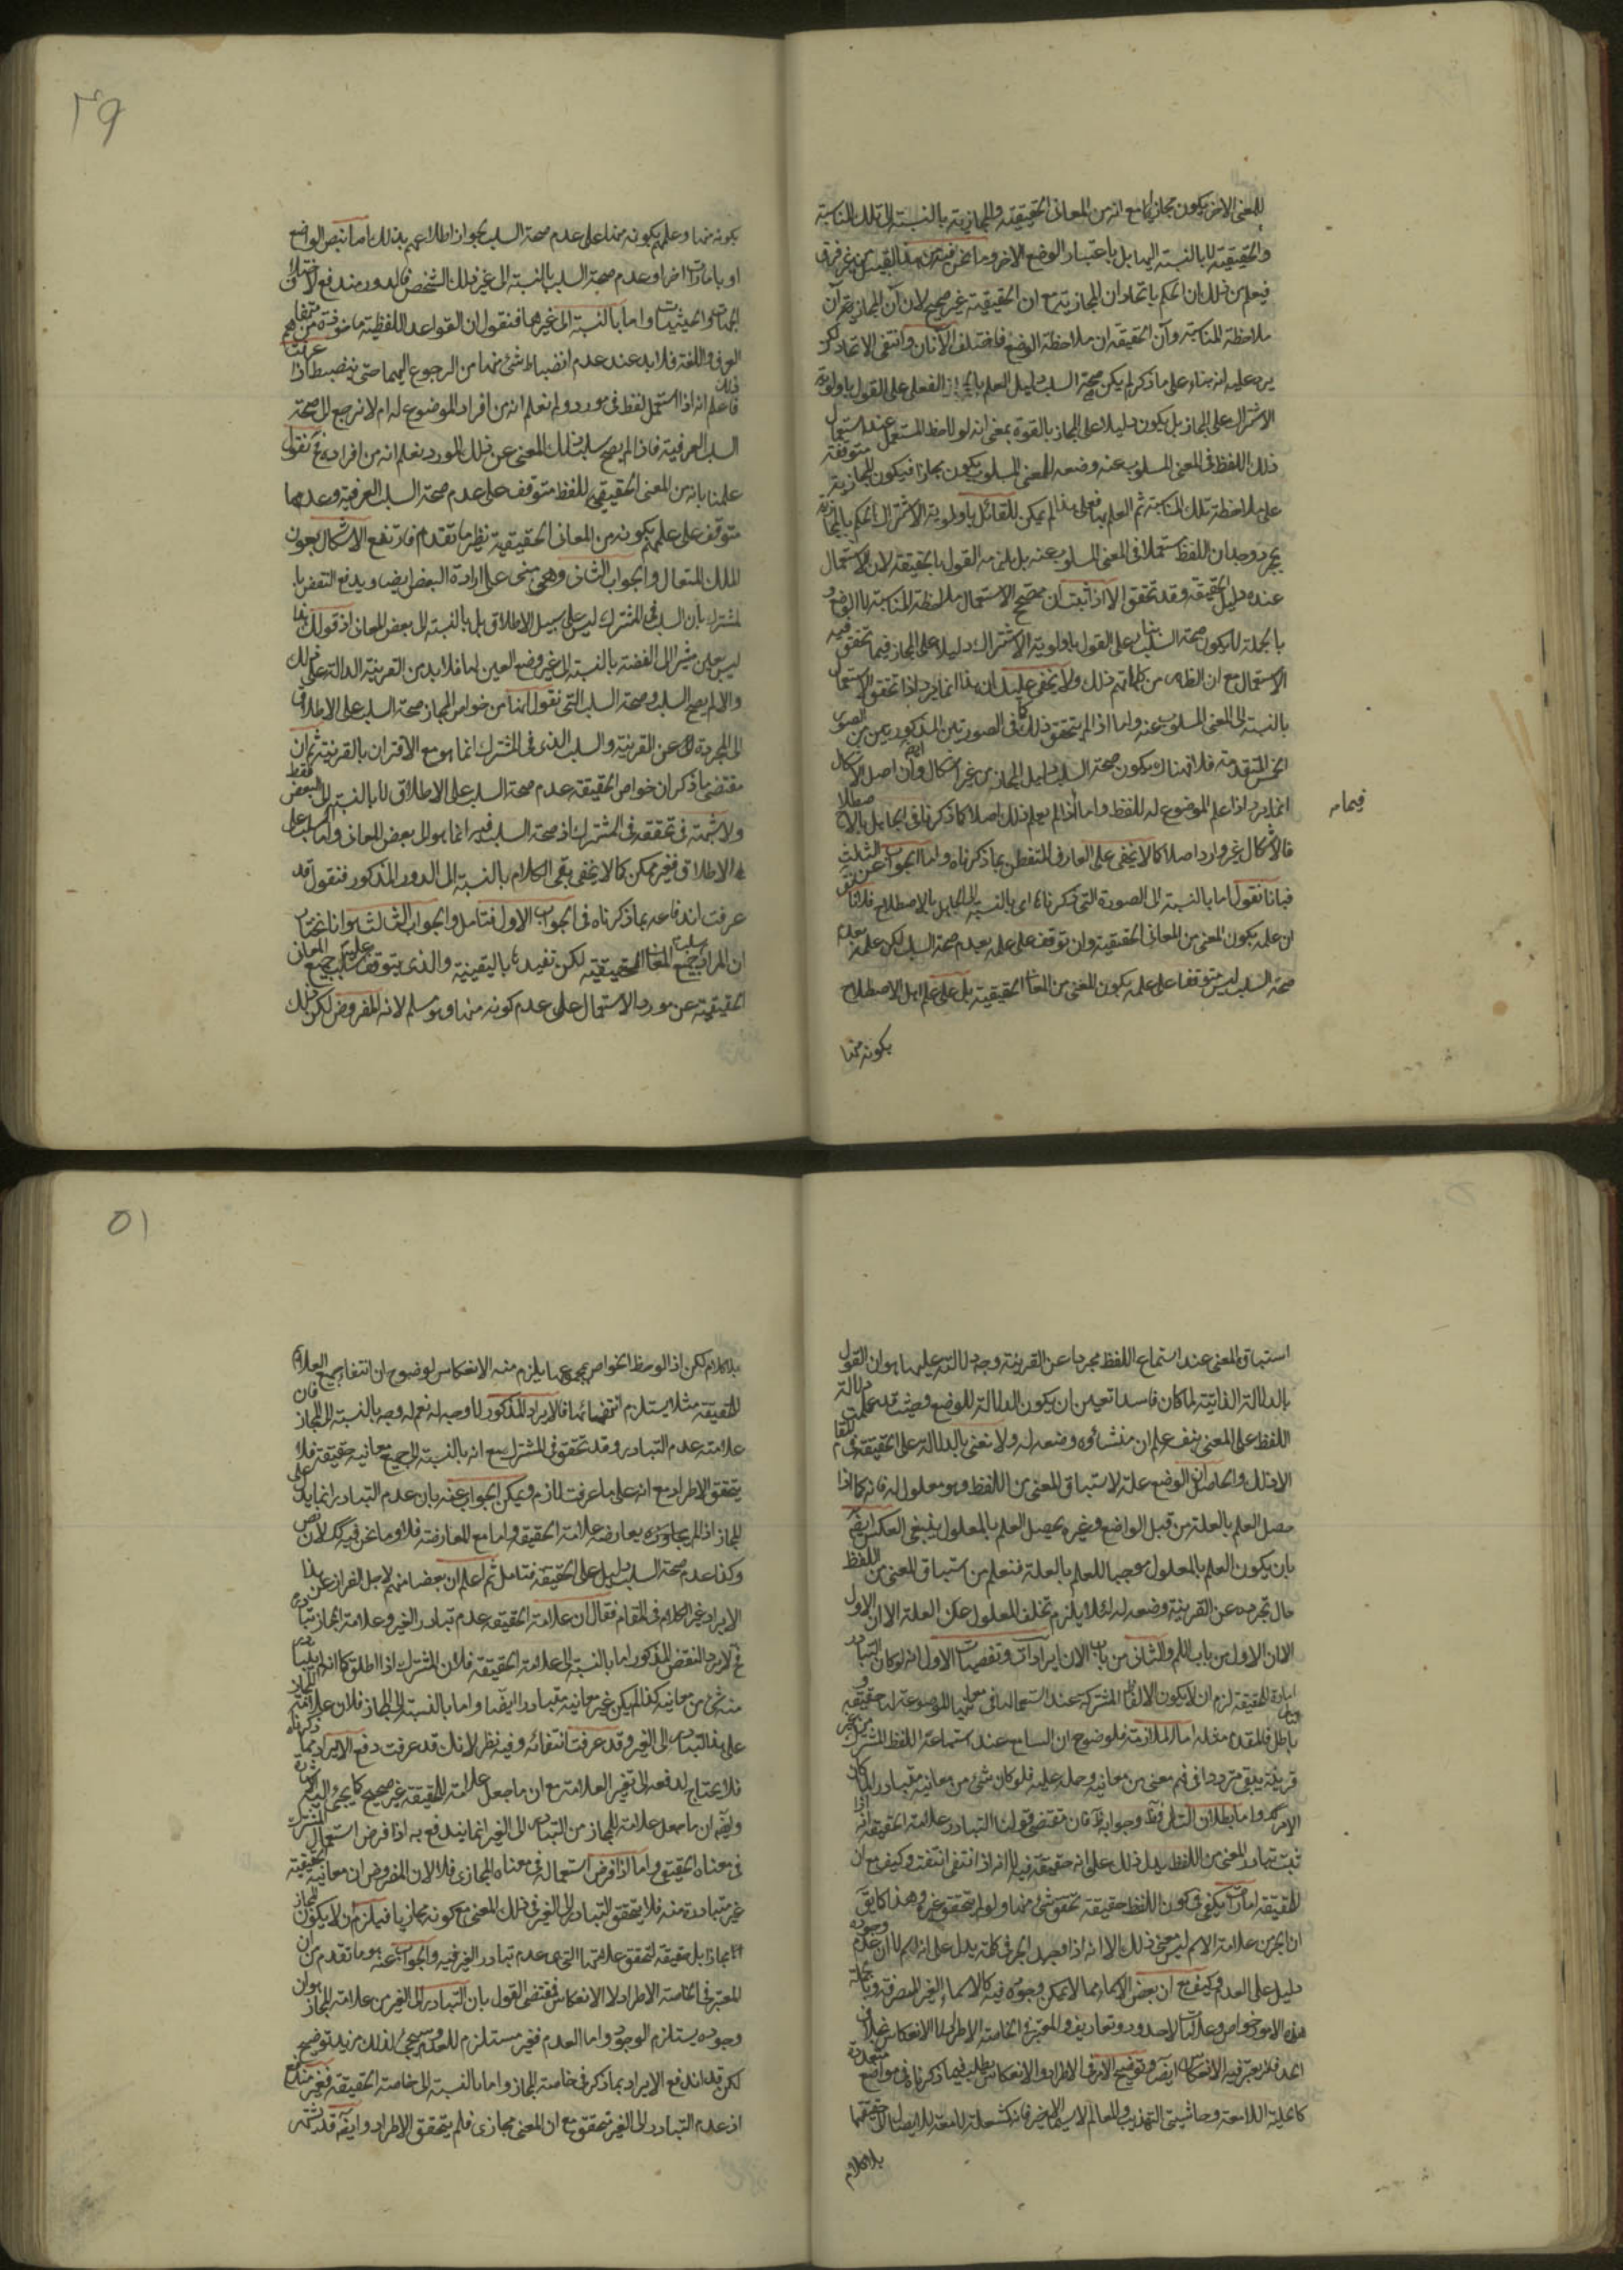 للمعنى الاخر يكون مجازيا مع انه من المعانى الحقيقية والمجازية بالنسبة الى تلك المناسبة
والحقيقية لا بالنسبة اليها بل باعتبار الوضع الاخر وما نحن فيه من هذا القبيل من غير فرق
فيعلم من ذلك ان الحكم باتحاد ان المجازية مع ان الحقيقة غير صحيح لان آن المجازية آن
ملاحظة المناسبة وآن الحقيقة ان ملاحظة الوضع فاختلف الآنان وانتفى الاتحاد لكن
يرد عليه انه بناء على ما ذكر لم يكن صحة السلب دليل العلم بالمجاز الفعلى على القول باولوية
الاشتراك على المجاز بل يكون دليلا على المجاز بالقوة بمعنى انه لو لاحظ المستعمل عند استعمال
ذلك اللفظ فى المعنى المسلوب عنه وضعه للمعنى المسلوب يكون مجازا فيكون المجازية متوقفة
على ملاحظة تلك المناسبة ثم العلم بها فعلى هذا لم يمكن للقائل باولوية الاشتراك الحكم بالمجازية
بمجرد وجدان اللفظ مستعملا فى المعنى المسلوب عنه بل يلزمه القول بالحقيقة لان الاستعمال
عنده دليل الحقيقة وقد تحقق الا اذا ثبت ان مصحح الاستعمال ملاحظة المناسبة لا الوضع و
بالجملة لا يكون صحة السلب بناء على القول باولوية الاشتراك دليلا على المجاز فيما تحقق فيه
الاستعمال مع ان الظاهر من كلماتهم ذلك ولا يخفى عليك ان هذا انما يرد اذا تحقق الاستعمال
بالنسبة الى المعنى المسلوب عنه واما اذا لم يتحقق ذلك كما فى الصورتين المذكورتين من الصور
الخمس المتقدمة فلا فهناك يكون صحة السلب دليل المجاز من غير اشكال وان اصل الاشكال
انما يرد اذا علم الموضوع له للفظ واما اذا لم يعلم ذلك اصلا كما ذكرنا فى الجاهل بالاصطلاح
فيما مر
فالاشكال غير وارد اصلا كما لا يخفى على العارف المتفطن بما ذكرناه واما الجواب عن الثالث
فبانا نقول اما بالنسبة الى الصورة التى ذكرناها اى بالنسبة الى الجاهل بالاصطلاح فلانا
ان علمه بكون المعنى من المعانى الحقيقية وان توقف على علمه بعدم صحة السلب لكن علمه بعدم
صحة السلب ليس متوقفا على علمه بكون المعنى من المعانى الحقيقية بل على علم اهل الاصطلاح
بكونه منها
٤٩
بكونه منها وعلمهم بكونه منها على عدم صحة السلب لجواز اطلاعهم بذلك اما بنص الواضع
او بامارات اخر او عدم صحة السلب بالنسبة الى غير ذلك الشخص فالدور مندفع لاختلاف
الجهات والحيثيات واما بالنسبة الى غيرهما فنقول ان القواعد اللفظية ماخوذة من متفاهم
العرف واللغة فلا بد عند عدم انضباط شئ منها من الرجوع اليهما حتى ينضبط اذا عرفت
ذلك فاعلم انه اذا استعمل لفظ فى مورد ولم نعلم انه من افراد الموضوع له ام لا نرجع الى صحة
السلب العرفية فاذا لم يصح سلب تلك المعنى عن ذلك المورد نعلم انه من افراده فنقول
علمنا بانه من المعنى الحقيقى للفظ متوقف على عدم صحة السلب العرفية وعدمها
متوقف على علمهم بكونه من المعانى الحقيقية نظير ما تقدم فارتفع الاشكال بعون
الملك المتعال والجواب الثانى وهى مبنى على ارادة البعض ايضا ويدفع النقض بالـ
لمشترك بان السلب فى المشترك ليس على سبيل الاطلاق بل بالنسبة الى بعض المعانى اذ قولك هذا
ليس بعين مشيرا الى الفضة بالنسبة الى غير وضع العين لها فلا بد من القرينة الدالة على ذلك
والا لم يصح السلب وصحة السلب التى نقول انها من خواص المجاز صحة السلب على الاطلاق
اى المجردة عن القرينة والسلب الذى فى المشترك انما هو مع الاقتران بالقرينة ثم ان
مقتضى ما ذكر ان خواص الحقيقة عدم صحة السلب على الاطلاق لا بالنسبة الى البعض فقط
ولا شبهة فى تحققه فى المشترك اذ صحة السلب فيه انما هو الى بعض المعانى واما السلب على
الاطلاق فغير ممكن كما لا يخفى بقى الكلام بالنسبة الى الدور المذكور فنقول قد
عرفت اندفاعه بما ذكرناه فى الجواب الاول فتامل والجواب الثالث هو انا نختار
ان المراد سلب جميع المعانى الحقيقية لكن نفيدها باليقينية والذى يتوقف عليه سلب جميع المعانى
الحقيقية عن مورد الاستعمال على عدم كونه منها وهو مسلم لانه المفروض لكن ذلك
استباق المعنى عند استماع اللفظ مجردا عن القرينة وجه دلالته عليها هو ان القول
بالدلالة الذاتية لما كان فاسدا تعين ان يكون الدلالة للوضع وحيث قد علمت دلالة
اللفظ على المعنى بنفسه علم ان منشأه وضعه له ولا نعنى بالدلالة على الحقيقة فى المقام
الا ذلك والحاصل ان الوضع علة لاستباق المعنى من اللفظ وهو معلول له فانه كما اذا
حصل العلم بالعلة من قبل الواضع وغيره يحصل العلم بالمعلول ينبغى العكس ايضا
بان يكون العلم بالمعلول موجبا للعلم بالعلة فنعلم من استباق المعنى من اللفظ
حال تجرده عن القرينة وضعه له لئلا يلزم تخلف المعلول عن العلة الا ان الاول
الان الاول من باب اللم والثانى من باب الان ايرادات وتفصيات الاول انه لو كان التبادر
امارة الحقيقة لزم ان لا يكون الالفاظ المشتركة عند استعمالها فى معانيها الموضوعة لها حقيقة و
باطل فالمقدم مثله اما الملازمة فلوضوح ان السامع عند استماعه اللفظ المشترك من غير
قرينة يبقى مترددا فى فهم معنى من معانيه وحمله عليه فلو كان شئ من معانيه متبادرا لما كان
الامر كذلك واما بطلان التالى فظ وجوابه ان مقتضى قولنا التبادر علامة الحقيقة انه اذا
ثبت تبادر المعنى من اللفظ يدل ذلك على انه حقيقة فيه لا انه اذا انتفى انتفت وكيف مع ان
للحقيقة امارات يكفى فى كون اللفظ حقيقة تحقق شئ منها ولو لم يتحقق غيره وهذا كما يق
ان الجر من علامة الاسم ليس معنى ذلك الا انه اذا وجد الجر فى كلمة يدل على انه اسم لا ان عدم وجوده
دليل على العدم وكيف مع ان بعض الاسماء مما لا يمكن وجوده فيه كالاسماء الغير المنصرفة وبالجملة
هذه الامور خواص وعلامات لا حدود وتعاريف والمعتبر فى الخاصة الاطراد لا الانعكاس بخلاف
الحد فلا يعتبر فيه الانعكاس ايضا وتوضيح الامر فى الاطراد والانعكاس يطلب فيما ذكرنا فى مواضع متعددة
كالحلية اللامعة وحاشيتى التهذيب والمعالم لا سيما الاخير فانه كشعلة لامعة للايصال الى حقيقتها
بلا كلام
٥١
بلا كلام لكن اذا لوحظ الخواص بجميعها يلزم منه الانعكاس لوضوح ان انتفاء جميع العلائم
للحقيقة مثلا يستلزم انتفائها فالايراد المذكور لا وجه له نعم له وجه بالنسبة الى المجاز فان
علامته عدم التبادر وقد تحقق فى المشترك مع انه بالنسبة الى جميع معانيه حقيقة فلا
يتحقق الاطراد مع انه على ما عرفت لازم ويمكن الجواب عنه بان عدم التبادر انما يدل على
المجاز اذا لم يعارضه علامة الحقيقة واما مع المعارضة فلا وما نحن فيه كك لان نص
وكذا عدم صحة السلب دليل على الحقيقة فتامل ثم اعلم ان بعضا منهم لاجل الفرار عن هذا
الايراد غير الكلام فى المقام فقال ان علامة الحقيقة عدم تبادر الغير وعلامة المجاز تبادر
فح لا يرد النقض المذكور اما بالنسبة الى علامة الحقيقة فلان المشترك اذا اطلق كما انه لم يتبادر
منه شئ من معانيه كذا لم يكن غير معانيه متبادرا ايضا واما بالنسبة الى المجاز فلان علامته
على هذا التبادر الى الغير وقد عرفت انتفائه وفيه نظر لانك قد عرفت دفع الايراد بما ذكرناه
فلا يحتاج لدفعه الى تغير العلامة مع ان ما جعل علامة للحقيقة غير صحيح كما يجئ اليه الاشارة
وايضا ان ما جعل علامة للمجاز من التبادر الى الغير انما يندفع به اذا فرض استعمال المشترك
فى معناه الحقيقى واما اذا فرض استعماله فى معناه المجازى فلا لان المفروض ان معانيه الحقيقية
غير متبادرة منه فلا يتحقق التبادر الى الغير فى ذلك المعنى مع كونه مجازيا فيلزم ان لا يكون المجاز
مجازا بل حقيقة لتحقق علامتها التى هى عدم تبادر الغير فيه والجواب عنه هو ما تقدم من ان
المعتبر فى الخاصة الاطراد لا الانعكاس فمقتضى القول بان التبادر الى الغير من علامة المجاز هو ان
وجوده يستلزم الوجود واما العدم فغير مستلزم للعدم وسيجئ لذلك مزيد توضيح
لكن قد اندفع الايراد بما ذكر فى خاصة المجاز واما بالنسبة الى خاصة الحقيقة فغير مندفع
اذ عدم التبادر الى الغير متحقق مع ان المعنى مجازى فلم يتحقق الاطراد وايضا قد اشتهر